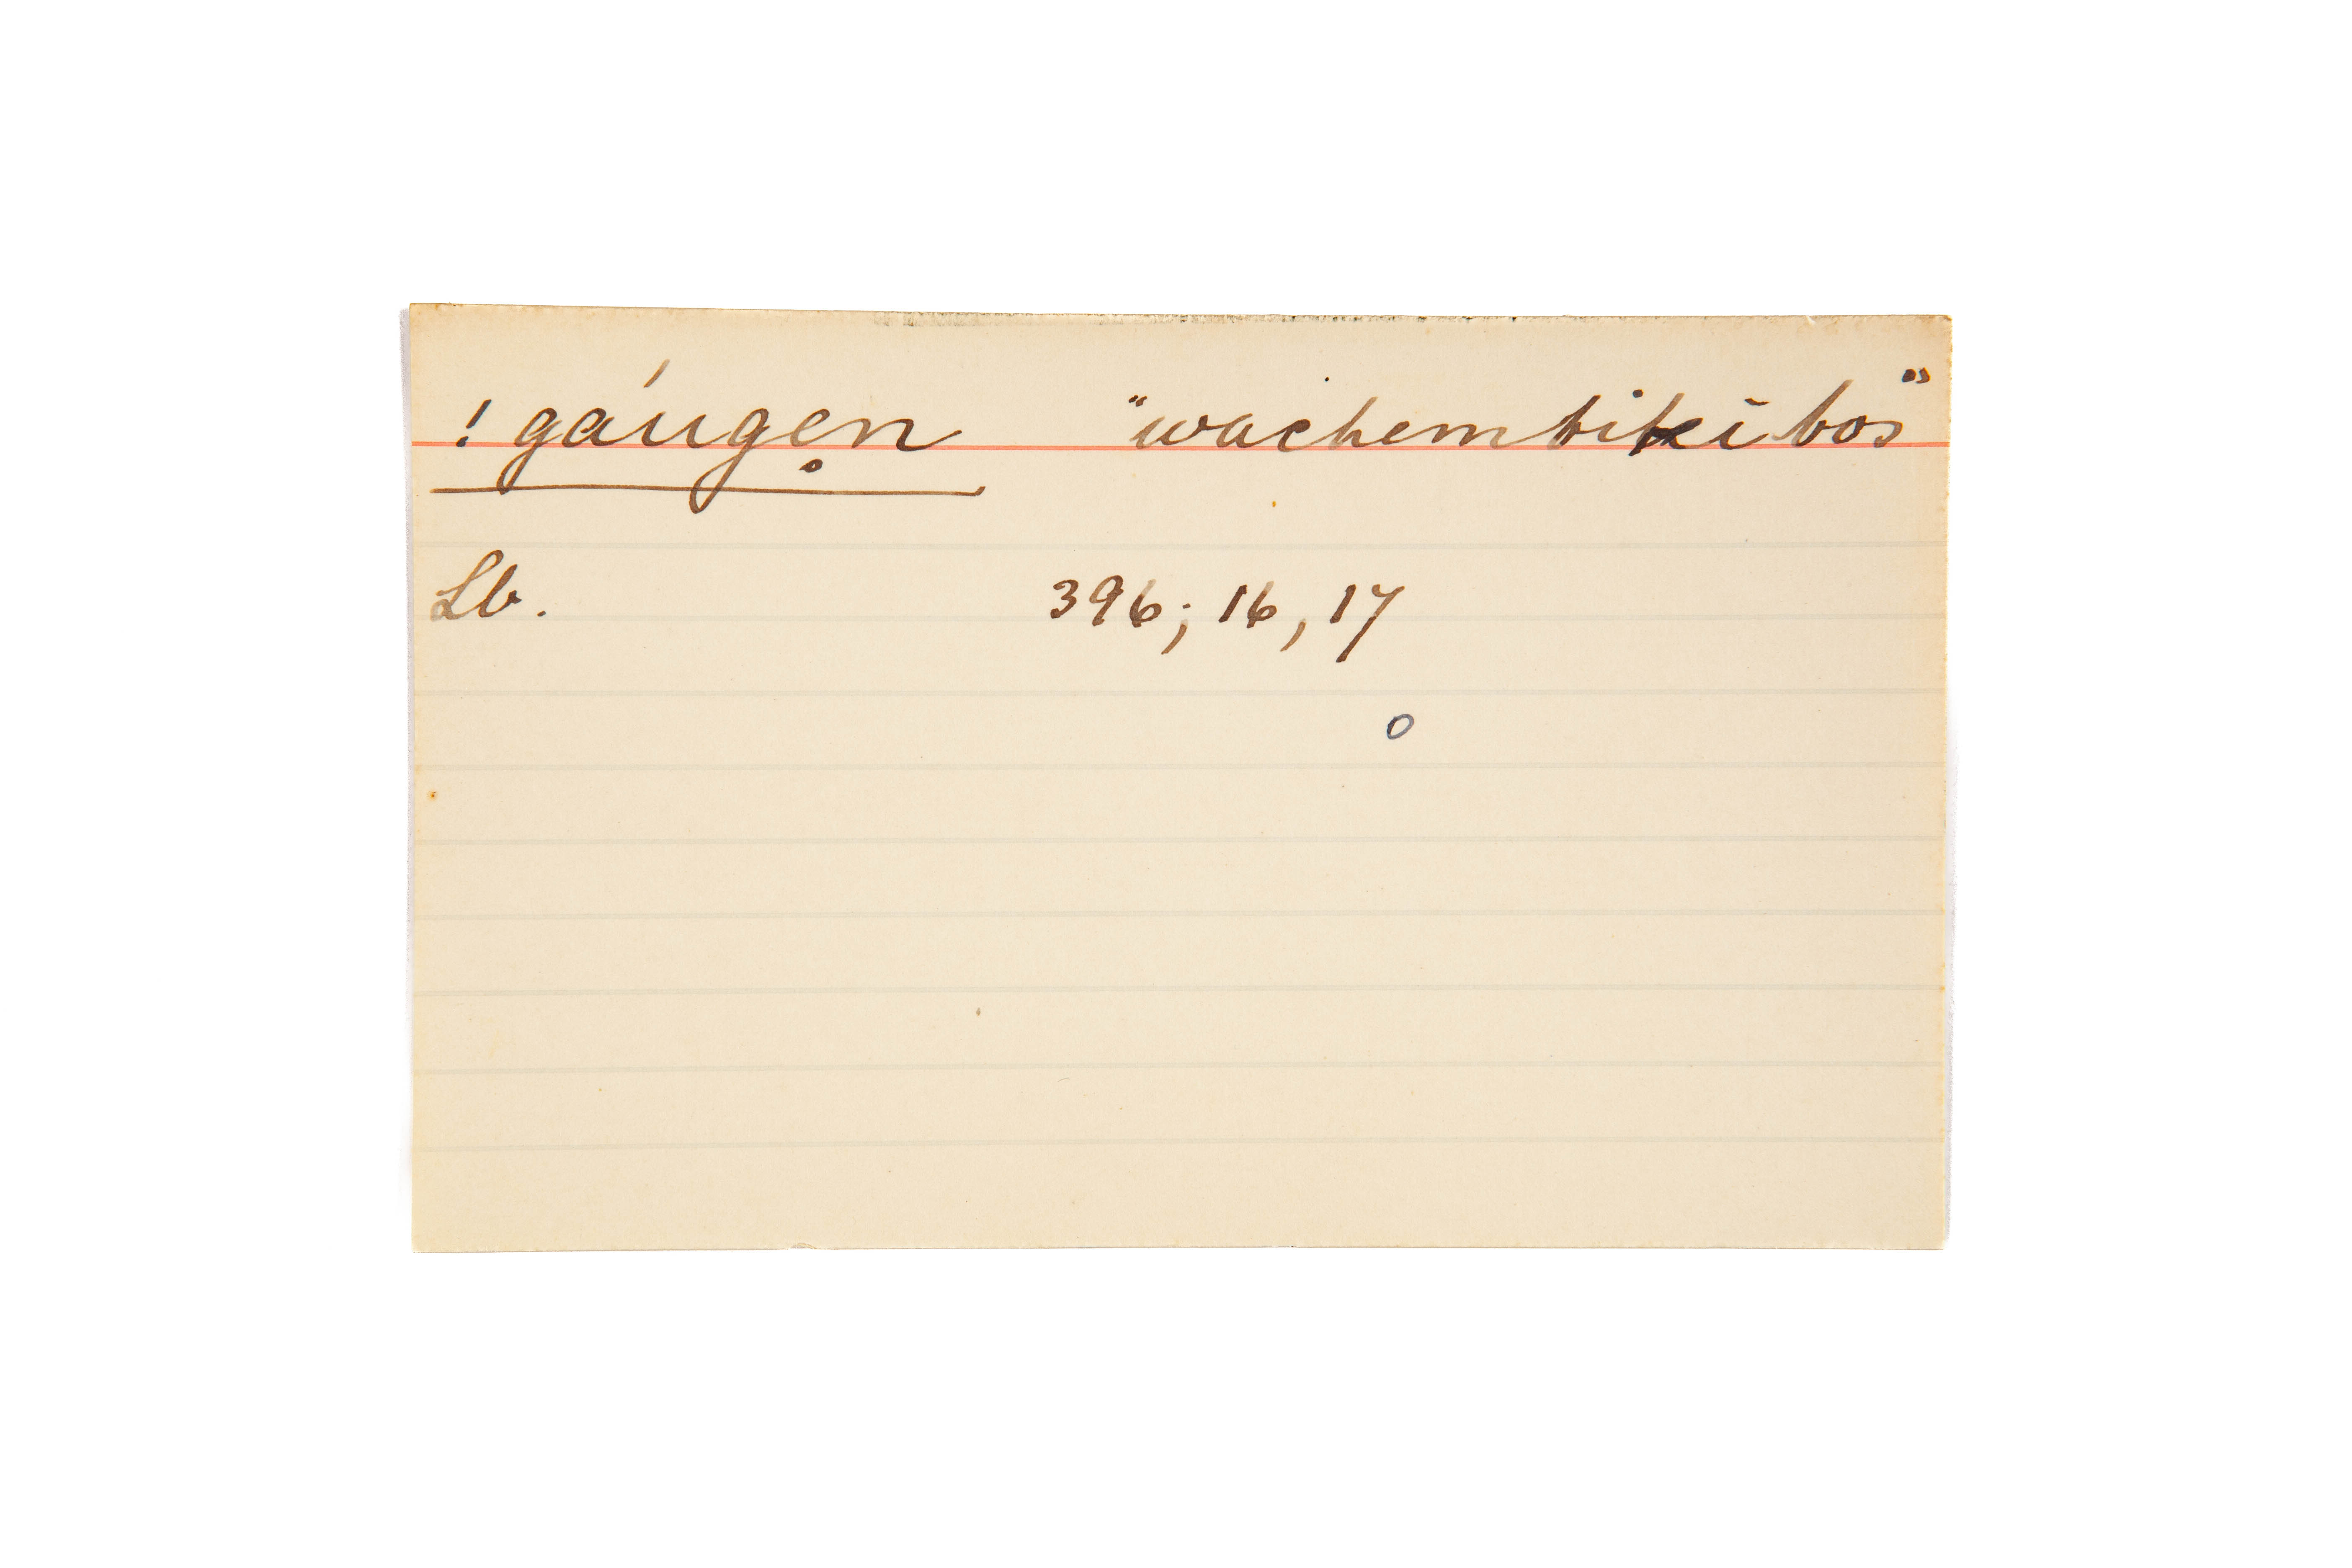 ! gáugẹn "wachembikībos"
Lb. 396; 16, 17
o